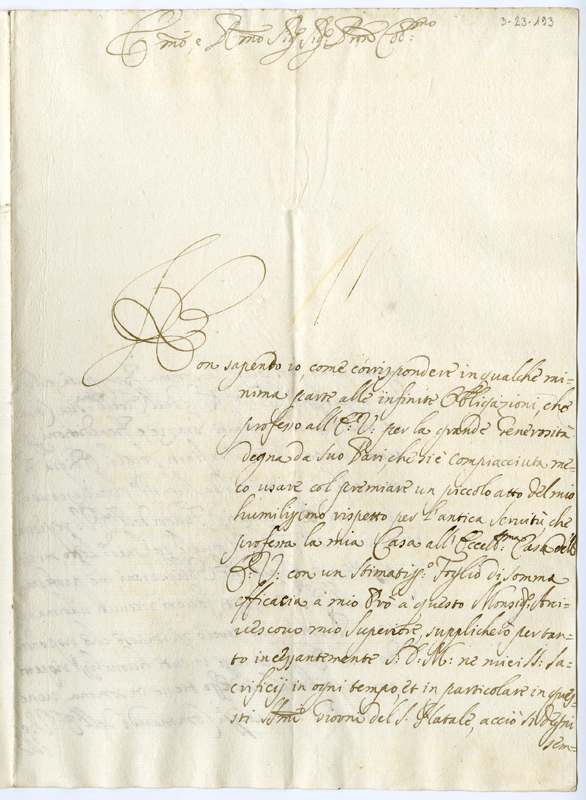 3-23-193
Em̃o, e Rm̃o Sig.r Sig.r Prõn Col:mo
Non sapendo io, come corrispondere in qualche mi=
nima parte alle infinite Obligazioni, che
professo all'E: V: per la grande generosità
degna da suo Pari che si è compiacciuta me=
co usare col premiare un piccolo atto del mio
humilissimo rispetto per l'antica servitù che
professa la mia Casa all'Eccell:ma Casa dell'
E: V: con un stimatiss:o Foglio di somma
efficacia à mio Prò à questo Monsig:r Arci=
vescovo mio Superiore, supplicherò per tan=
to incessantemente S: D: M: ne miei SS: Sa=
crificij in ogni tempo et in particolare in ques=
ti SSmi Giorni del S: Natale, acciò si degni
sem=